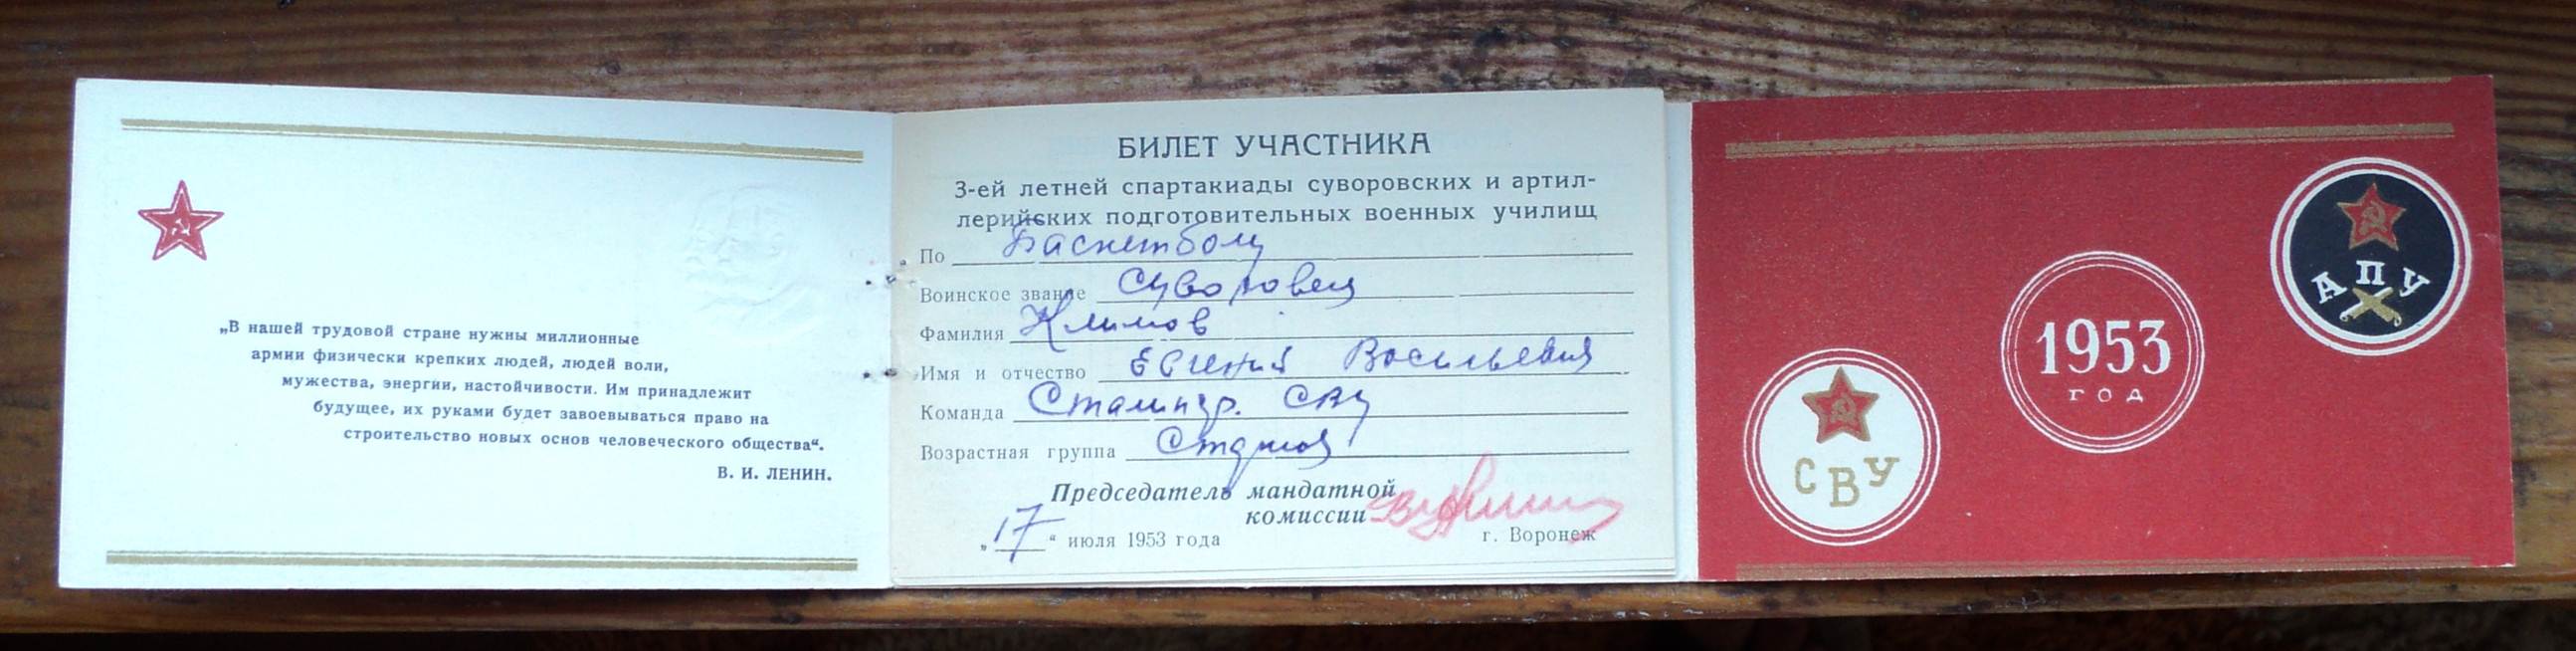 „В нашей трудовой стране нужны миллионные
армии физически крепких людей, людей воли,
мужества, энергии, настойчивости. Им принадлежит
будущее, их руками будет завоевываться право на
строительство новых основ человеческого общества“.
В. И. ЛЕНИН.
БИЛЕТ УЧАСТНИКА
3-ей летней спартакиады суворовских и артил-
лерийских подготовительных военных училищ
По Баскетболу
Воинское звание Суворовец
Фамилия Климов
Имя и отчество Евгений Васильевич
Команда Сталингр. СВУ
Возрастная группа Старшая
Председатель мандатной
комиссии
„17“ июля 1953 года г. Воронеж
СВУ
1953
ГОД
АПУ